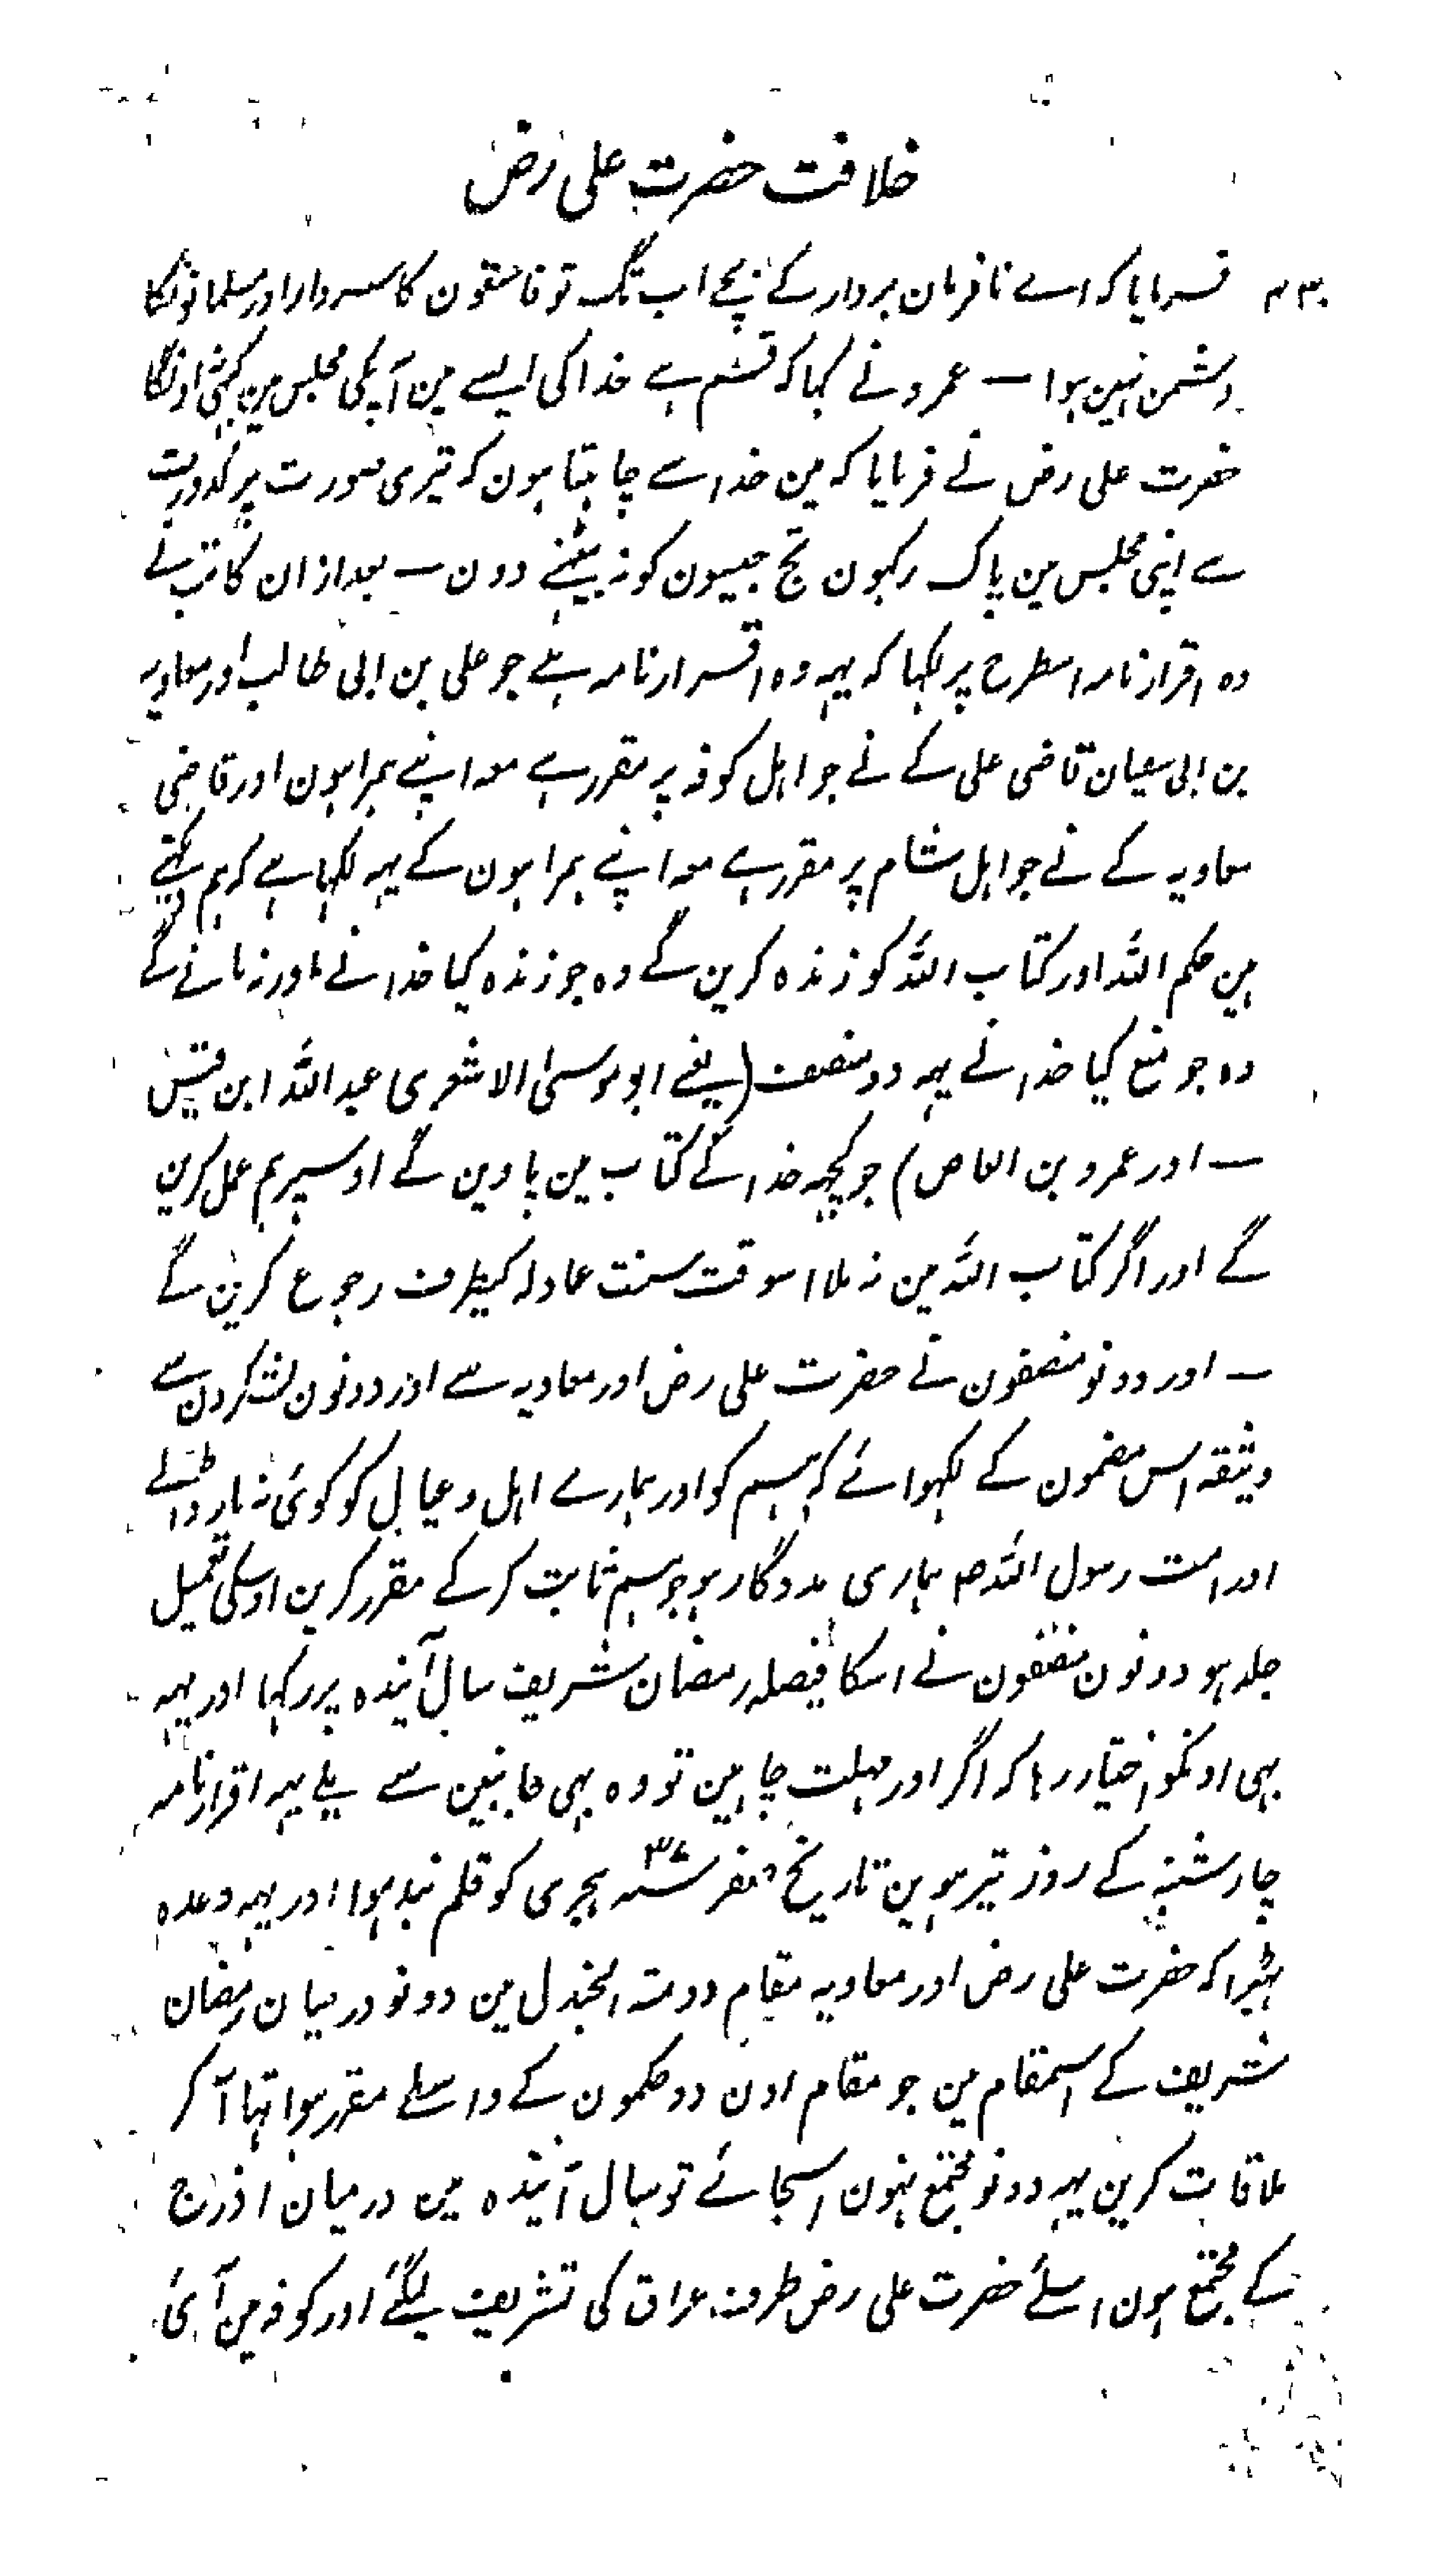 خلافت حضرت علی رض
فرمایا کہ اے نافرمان بردار کے بچے اب تک تو فاسقون کا سردار اور مسلمانونکا
دشمن نہین ہوا — عمرو نے کہا کہ قسم ہے خدا کی ایسے مین آپکی مجلس مین کبھی اونگا
حضرت علی رض نے فرمایا کہ مین خدا سے چاہتا ہون کہ تیری صورت پر کدورت
سے اپنی مجلس مین پاک رکہون تج جیسون کو نہ بیٹہنے دون — بعد ازان کاتب نے
وہ اقرارنامہ اسطرح پر لکہا کہ یہہ وہ اقرارنامہ ہے جو علی بن ابی طالب اور معاویہ
بن ابی سفیان قاضی علی کے نے جو اہل کوفہ پر مقرر ہے معہ اپنے ہمراہون اور قاضی
معاویہ کے نے جو اہل شام پر مقرر ہے معہ اپنے ہمراہون کے یہہ لکہا ہے کہ ہم
ہین حکم اللہ اور کتاب اللہ کو زندہ کرین گے وہ جو زندہ کیا خدا نے اور نہ مانے گے
وہ جو منع کیا خدا نے یہہ دو منصف (یعنے ابو موسیٰ الاشعری عبد اللہ ابن قیس
— اور عمرو بن العاص) جو کچھہ خدا کے کتاب مین پاوین گے اوسپر ہم عمل کرین
گے اور اگر کتاب اللہ مین نہ ملا اسوقت سنت عادلہ کیطرف رجوع کرین گے
— اور دونو منصفون نے حضرت علی رض اور معاویہ سے اور دونون لشکرون سے
وثیقہ اس مضمون کے لکہوائے کہ ہم کو اور ہمارے اہل و عیال کو کوئی نہ مار ڈالے
اور امت رسول اللہ صہ ہماری مددگار ہو جو ہم ثابت کر کے مقرر کرین اوسکی تعمیل
جلد ہو دونون منصفون نے اسکا فیصلہ رمضان شریف سال آیندہ پر رکہا اور یہہ
بہی اونکو اختیار رہا کہ اگر اور مہلت چاہین تو وہ بہی جانبین سے ملے یہہ اقرارنامہ
چار شنبہ کے روز تیرہوین تاریخ صفر ۳۷ سنہ ہجری کو قلم بند ہوا اور یہہ وعدہ
ٹہیرا کہ حضرت علی رض اور معاویہ مقام دومتہ الجندل مین دونو درمیان رمضان
شریف کے اسمقام مین جو مقام اون دو حکمون کے واسطے مقرر ہوا تہا آ کر
ملاقات کرین یہہ دونو مجتمع نہون اسجائے تو سال آیندہ مین درمیان اذرج
کے مجتمع ہون اسلئے حضرت علی رض طرف عراق کی تشریف لیگئے اور کوفہ مین آئی